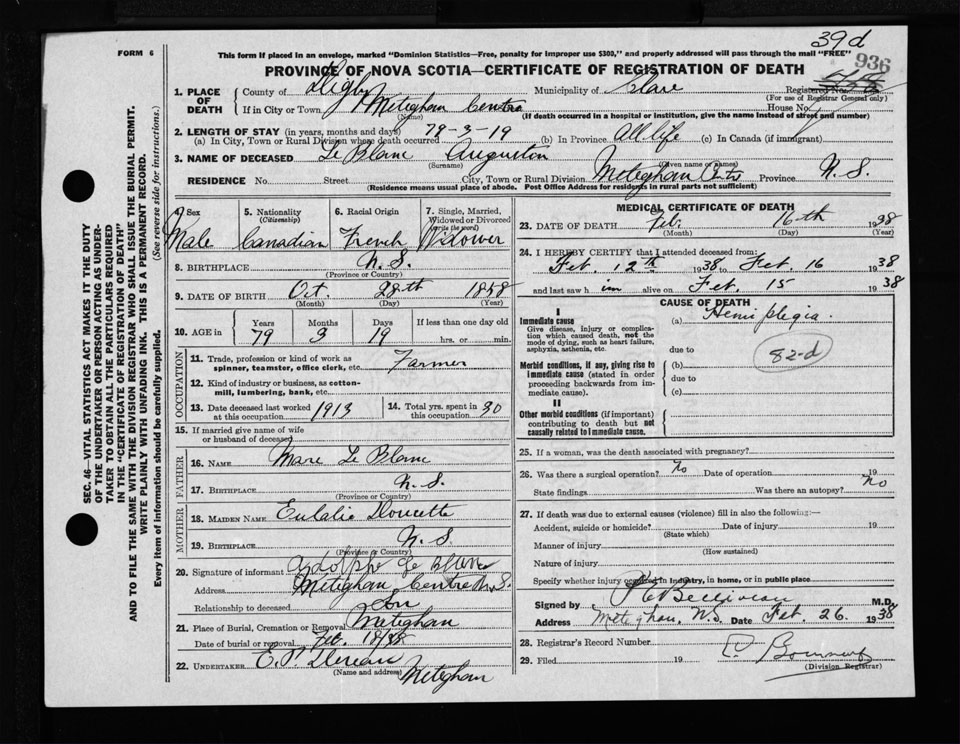 39d
FORM 6
This form if placed in an envelope, marked "Dominion Statistics—Free, penalty for improper use $300," and properly addressed will pass through the mail "FREE"
936
PROVINCE OF NOVA SCOTIA—CERTIFICATE OF REGISTRATION OF DEATH
1. PLACE OF DEATH
County of Digby Municipality of Clare Registered No.
(For use of Registrar General only)
If in City or Town Meteghan Centre House No.
(Name) (If death occurred in a hospital or institution, give the name instead of street and number)
2. LENGTH OF STAY (in years, months and days)
(a) In City, Town or Rural Division where death occurred 79-3-19 (b) In Province All life (c) In Canada (if immigrant)
3. NAME OF DECEASED Le Blanc Augustin
(Surname) (Given name or names)
RESIDENCE No. Street City, Town or Rural Division Meteghan Ctre Province N. S.
(Residence means usual place of abode. Post Office Address for residents in rural parts not sufficient)
4. Sex Male
5. Nationality (Citizenship) Canadian
6. Racial Origin French
7. Single, Married, Widowed or Divorced (write the word) Widower
8. BIRTHPLACE N. S.
(Province or Country)
9. DATE OF BIRTH Oct. 28th 1858
(Month) (Day) (Year)
10. AGE in Years Months Days If less than one day old
79 3 19 hrs. or min.
OCCUPATION
11. Trade, profession or kind of work as spinner, teamster, office clerk, etc. Farmer
12. Kind of industry or business, as cotton-mill, lumbering, bank, etc.
13. Date deceased last worked at this occupation 1913
14. Total yrs. spent in this occupation 30
15. If married give name of wife or husband of deceased
FATHER
16. NAME Marc Le Blanc
17. BIRTHPLACE N. S.
(Province or Country)
MOTHER
18. MAIDEN NAME Eulalie Doucette
19. BIRTHPLACE N. S.
(Province or Country)
20. Signature of informant Adolphe Le Blanc
Address Meteghan Centre N. S.
Relationship to deceased Son
21. Place of Burial, Cremation or Removal Meteghan
Date of burial or removal Feb. 18/38
22. UNDERTAKER E. P. Meteghan
(Name and address)
MEDICAL CERTIFICATE OF DEATH
23. DATE OF DEATH Feb. 16th 1938
(Month) (Day) (Year)
24. I HEREBY CERTIFY that I attended deceased from:
Feb. 12th 1938 to Feb. 16 1938
and last saw h im alive on Feb. 15 1938
CAUSE OF DEATH
I
Immediate cause
Give disease, injury or complication which caused death, not the mode of dying, such as heart failure, asphyxia, asthenia, etc.
(a) Hemiplegia
due to
82-d
Morbid conditions, if any, giving rise to immediate cause (stated in order proceeding backwards from immediate cause).
(b)
due to
(c)
II
Other morbid conditions (if important) contributing to death but not causally related to immediate cause.
25. If a woman, was the death associated with pregnancy?
26. Was there a surgical operation? No Date of operation 19
State findings Was there an autopsy? No
27. If death was due to external causes (violence) fill in also the following:—
Accident, suicide or homicide? Date of injury 19
(State which)
Manner of injury
(How sustained)
Nature of injury
Specify whether injury occurred in industry, in home, or in public place
Signed by Belliveau M.D.
Address Meteghan, N.S. Date Feb. 26. 1938
28. Registrar's Record Number
29. Filed 19
(Division Registrar)
SEC. 46—VITAL STATISTICS ACT MAKES IT THE DUTY
OF THE UNDERTAKER OR PERSON ACTING AS UNDER-
TAKER TO OBTAIN ALL THE PARTICULARS REQUIRED
IN THE "CERTIFICATE OF REGISTRATION OF DEATH"
AND TO FILE THE SAME WITH THE DIVISION REGISTRAR WHO SHALL ISSUE THE BURIAL PERMIT.
WRITE PLAINLY WITH UNFADING INK. THIS IS A PERMANENT RECORD.
Every item of information should be carefully supplied. (See reverse side for instructions.)